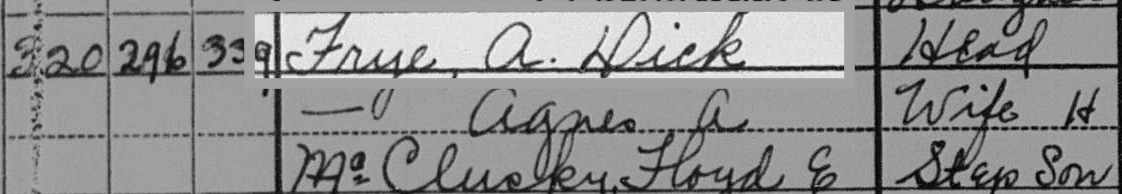 320 296 339 Frye, A. Dick Head
— Agnes A Wife H
Mc Clusky, Floyd E Step Son